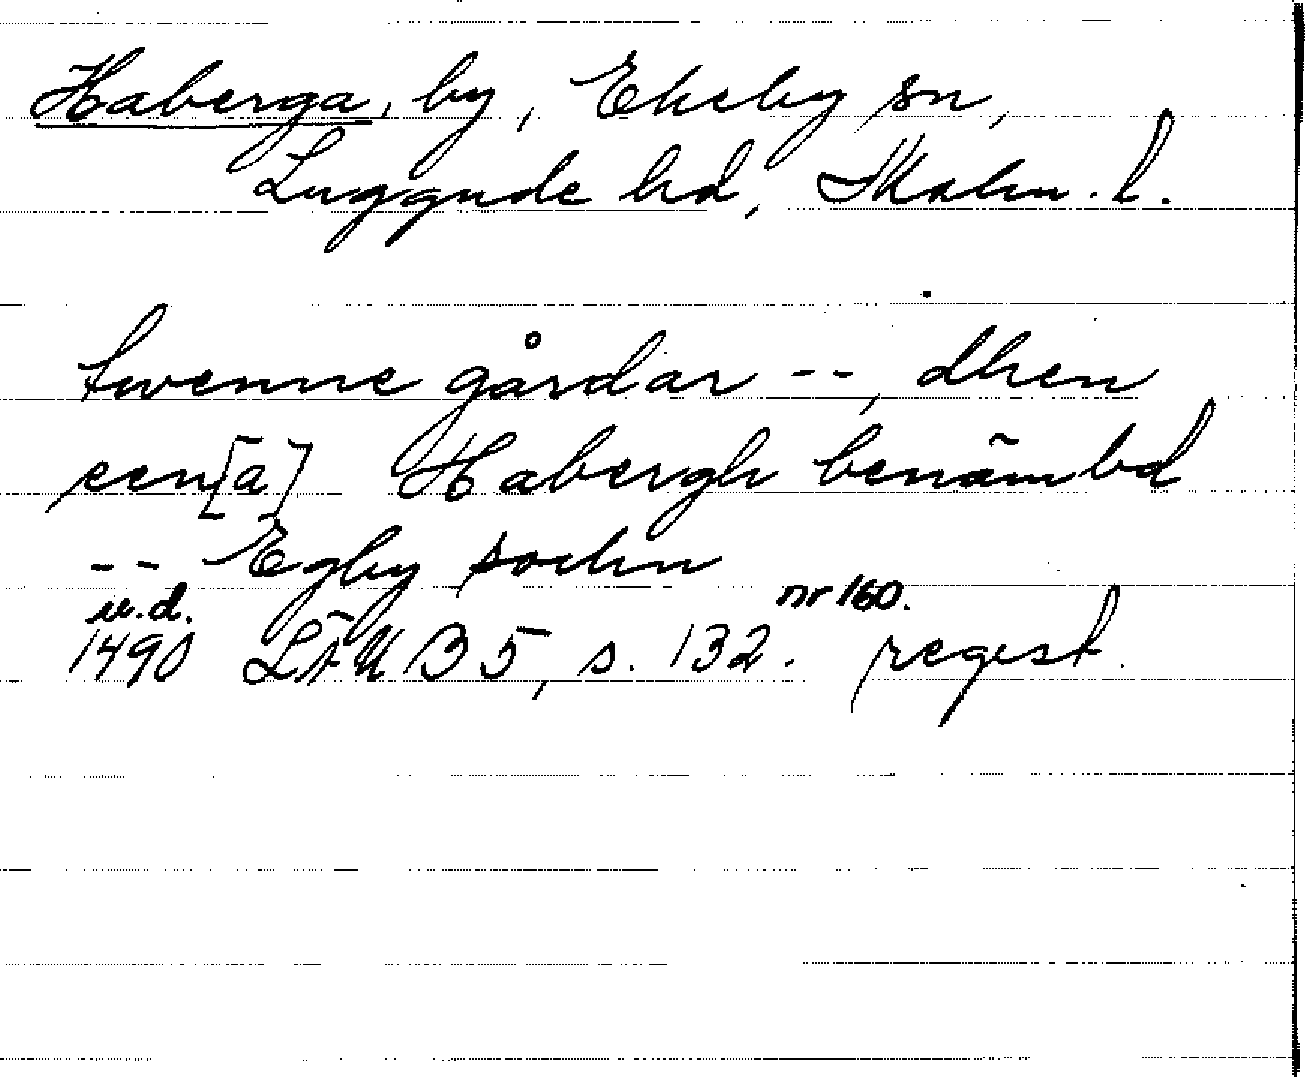 Haberga, by, Ekeby sn,
Luggude hd, Malm. l.
twenne gårdar --, dhen
een[a] Habergh benämbd
-- Egby sochn
u.d. nr 160.
1490 LÄU B5, s. 132. regest.